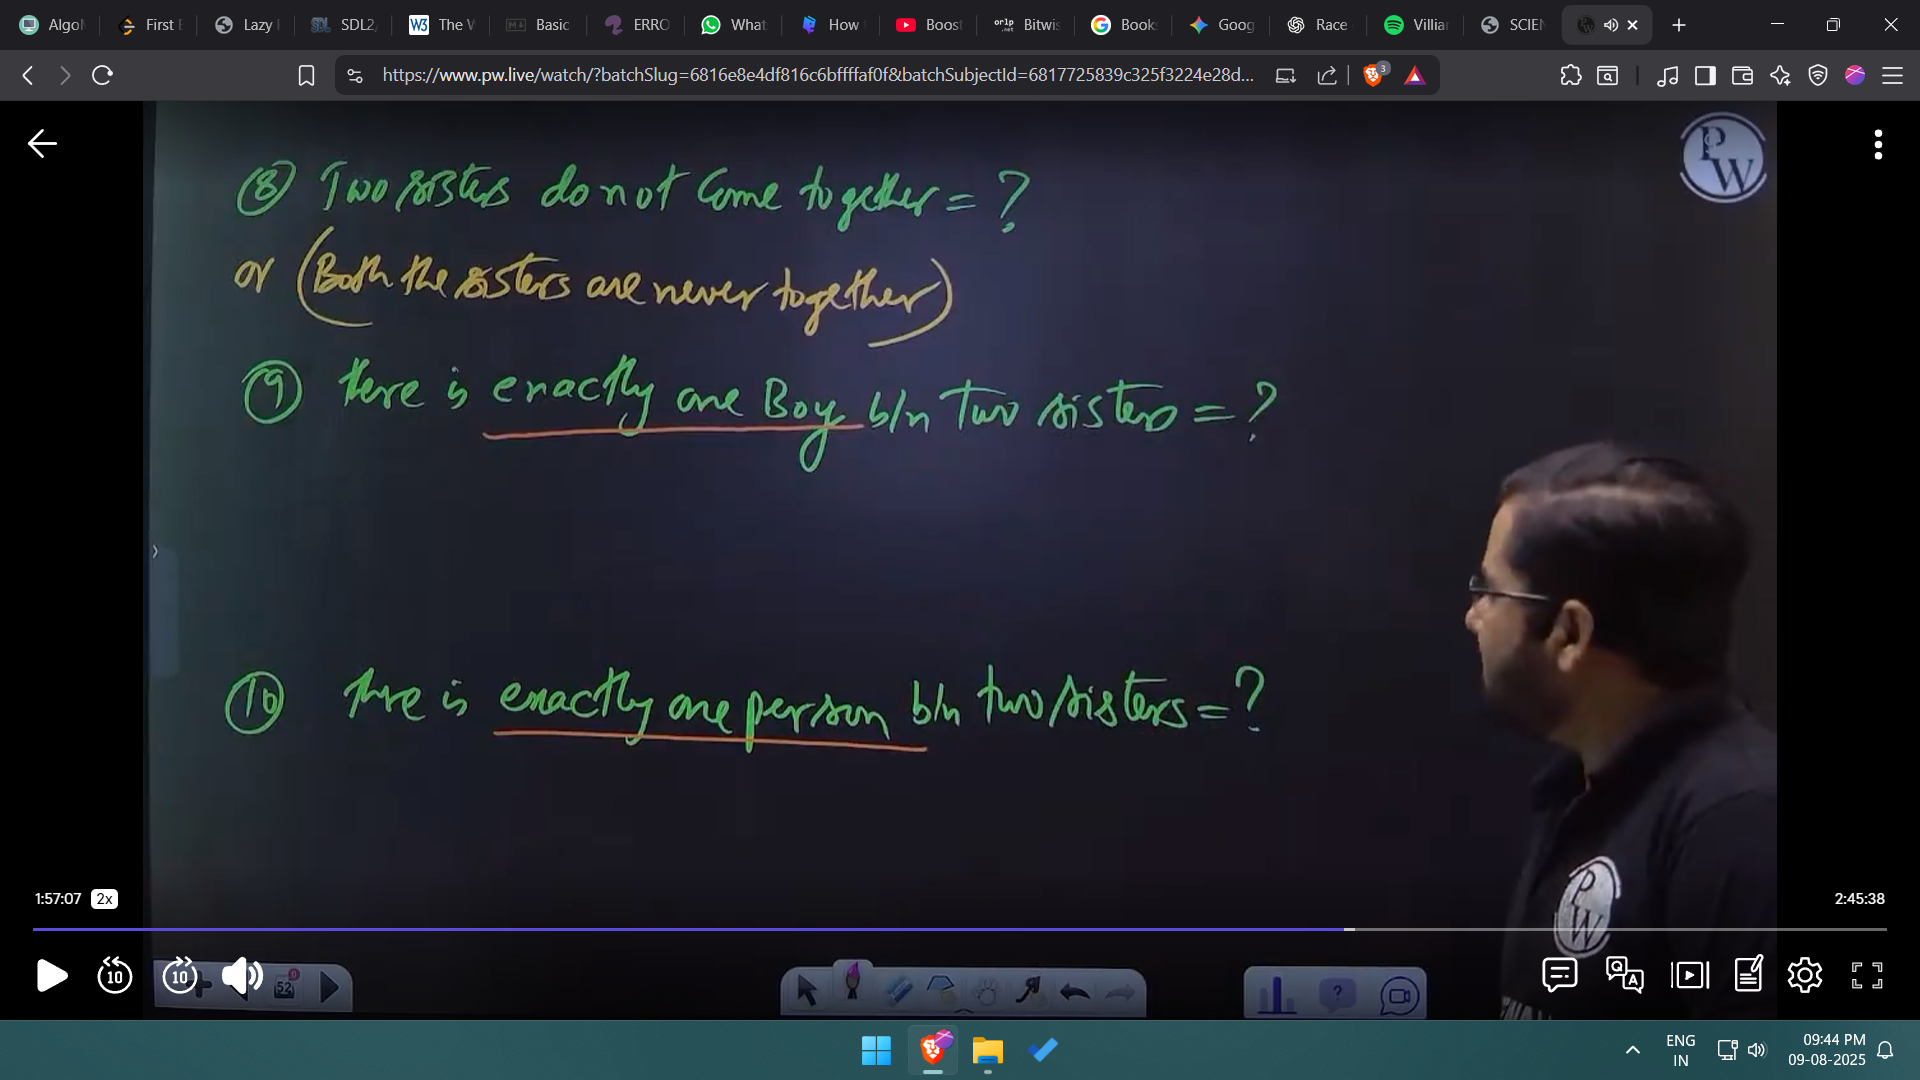 Algo First E Lazy SDL2, W3 The W Basic ERRO What How Boost orlp .net Bitwis Book Goog Race Villiar SCIEN
https://www.pw.live/watch/?batchSlug=6816e8e4df816c6bffffaf0f&batchSubjectId=6817725839c325f3224e28d... 3
PW
⑧ Two sisters do not Come together = ?
or (Both the sisters are never together)
⑨ there is exactly one Boy b/n Two sisters = ?
⑩ there is exactly one person b/n two sisters = ?
1:57:07 2x 2:45:38
PW
10 10 52
ENG
IN
09:44 PM
09-08-2025